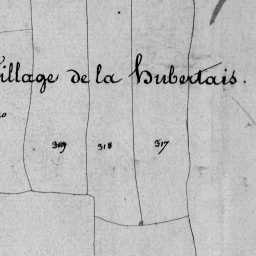 Village de la hubertais.
319 318 317